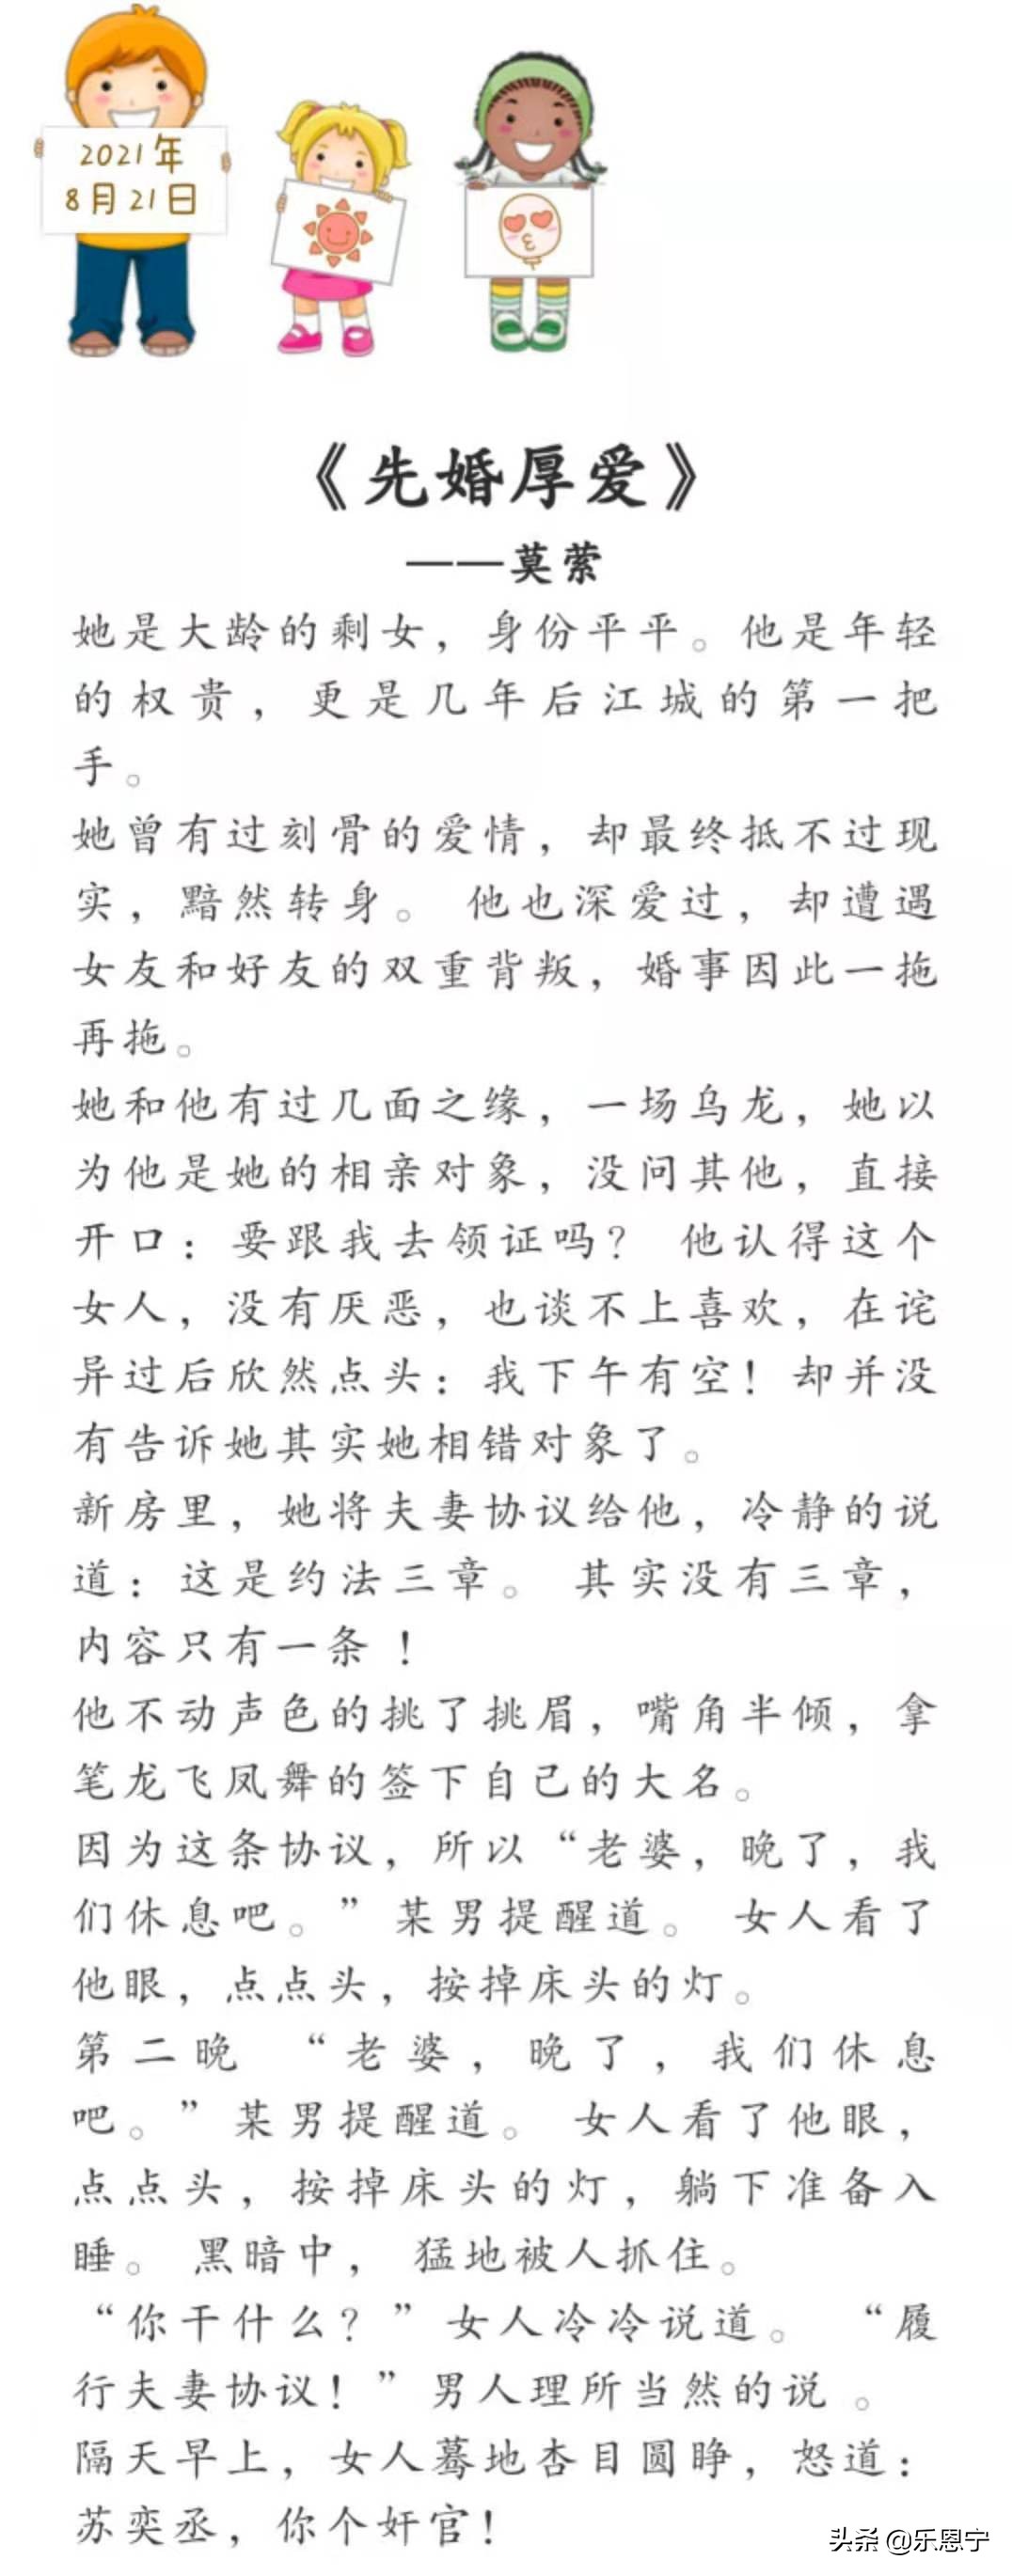 2021年
8月21日
《先婚厚爱》
——莫萦
她是大龄的剩女，身份平平。他是年轻
的权贵，更是几年后江城的第一把
手。
她曾有过刻骨的爱情，却最终抵不过现
实，黯然转身。 他也深爱过，却遭遇
女友和好友的双重背叛，婚事因此一拖
再拖。
她和他有过几面之缘，一场乌龙，她以
为他是她的相亲对象，没问其他，直接
开口：要跟我去领证吗？ 他认得这个
女人，没有厌恶，也谈不上喜欢，在诧
异过后欣然点头：我下午有空！却并没
有告诉她其实她相错对象了。
新房里，她将夫妻协议给他，冷静的说
道：这是约法三章。 其实没有三章，
内容只有一条 ！
他不动声色的挑了挑眉，嘴角半倾，拿
笔龙飞凤舞的签下自己的大名。
因为这条协议，所以“老婆，晚了，我
们休息吧。”某男提醒道。 女人看了
他眼，点点头，按掉床头的灯。
第二晚 “老婆，晚了，我们休息
吧。”某男提醒道。 女人看了他眼，
点点头，按掉床头的灯，躺下准备入
睡。 黑暗中， 猛地被人抓住。
“你干什么？”女人冷冷说道。 “履
行夫妻协议！”男人理所当然的说 。
隔天早上，女人蓦地杏目圆睁，怒道：
苏奕丞，你个奸官！
头条 @乐恩宁